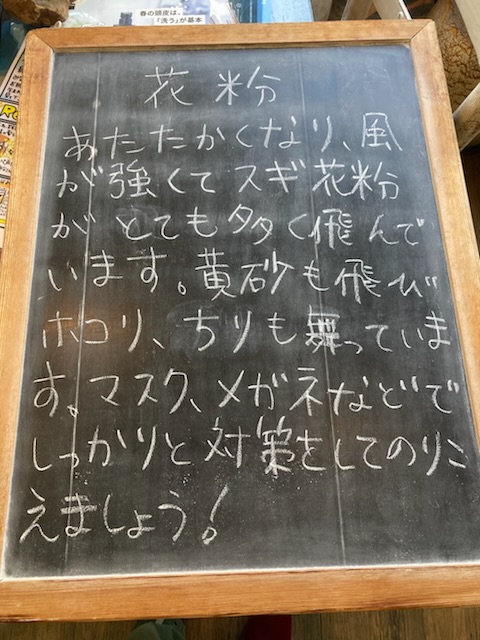 春の頭皮は、
「洗う」が基本
花粉
あたたかくなり、風
が強くてスギ花粉
がとても多く飛んで
います。黄砂も飛び
ホコリ、ちりも舞っていま
す。マスク、メガネなどで
しっかりと対策をしてのりこ
えましょう!